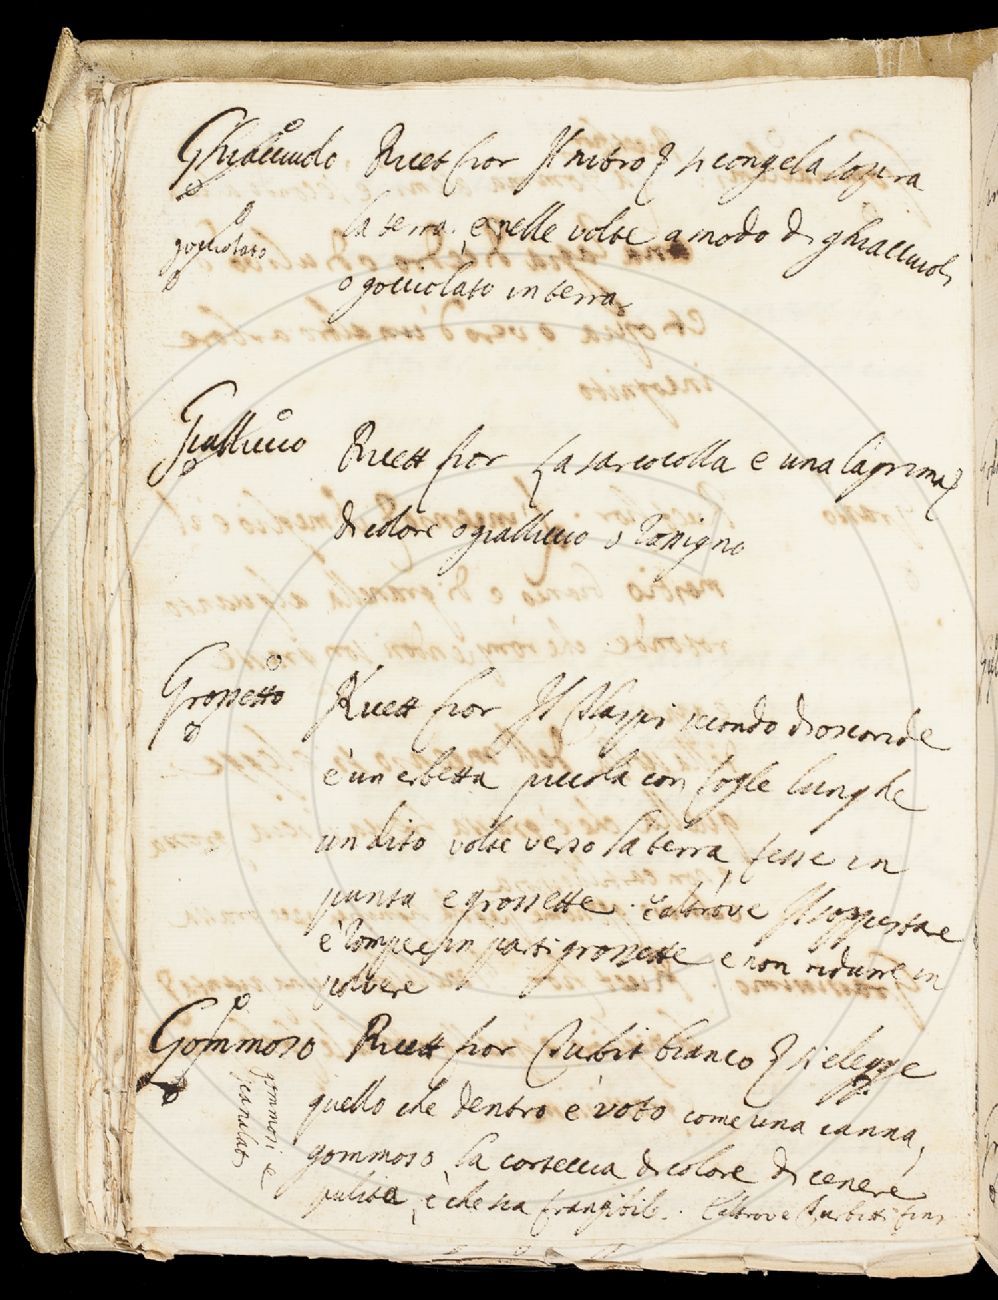 Ghiacciuolo Ricet fior Il nitro si congela sopra
la terra, e nelle volte a modo di ghiacciuoli
gocciolato
o gocciolato in terra
Gialliccio Ricett fior La sarcocolla e una lagrima
di colore o gialliccio o rossigno
Grossetto Ricett fior Il Thaspi secondo dioscoride
è un erbetta piccola con fogle lunghe
un dito volte verso la terra, fesse in
punta e grossette. E altrove Il soppestare
è rompere in parti grossette e non ridurre in
polvere
Gommoso Ricett fior Turbit bianco si elegge
quello che dentro è voto come una canna,
gommosi e
canalati
gommoso, la corteccia di colore di cenere
pulita, e che sia frangibile. E altrove Turbitti fini